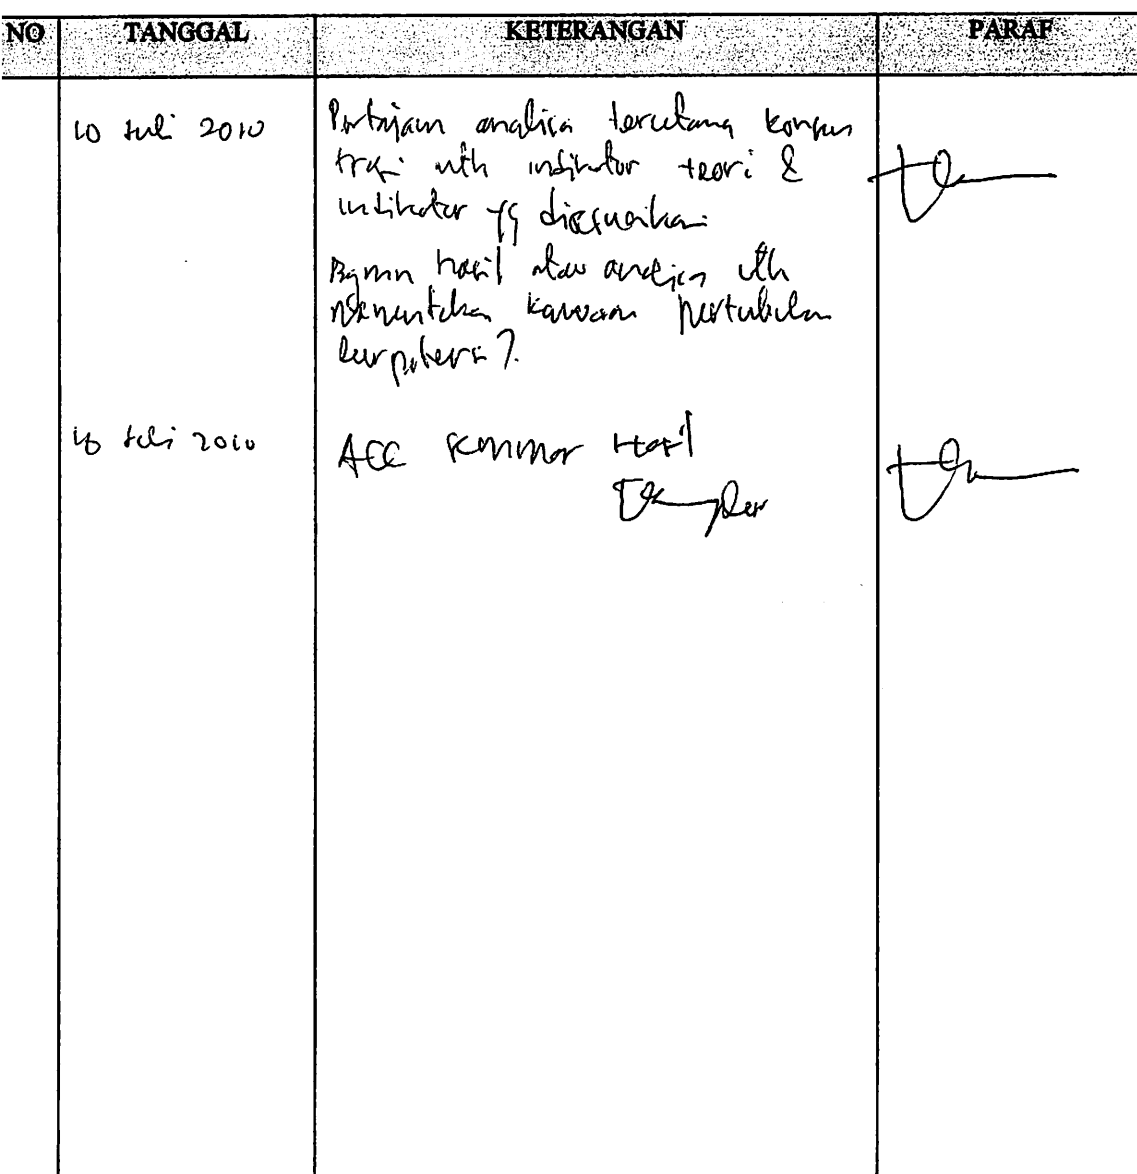 NO TANGGAL KETERANGAN PARAF
10 Juli 2010 Pertajam analisa terutama konsen
trasi utk indikator teori &
indikator yg disesuaikan
Bgmn hasil atau analisa utk
menentukan kawasan
berpotensi?
Juli 2010 ACC Seminar Hasil